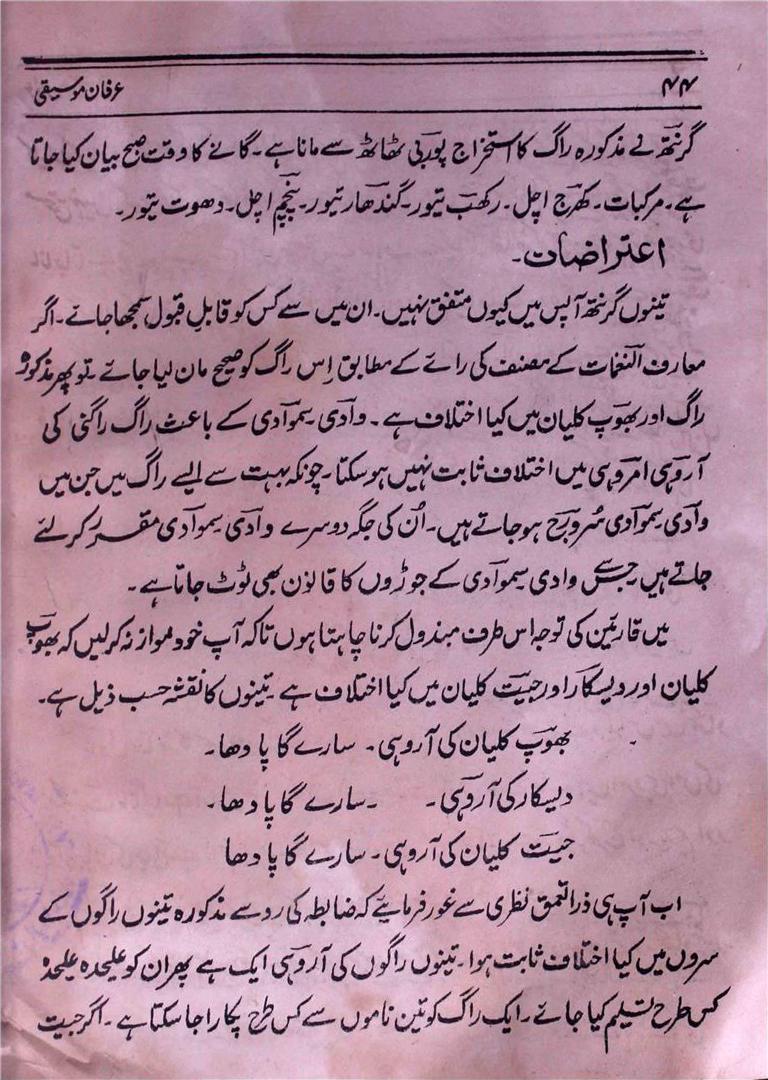 ۴۴ عرفان موسیقی
گرنتھ نے مذکورہ راگ کا استخراج پوربی ٹھاٹھ سے مانا ہے۔ گانے کا وقت صبح بیان کیا جاتا
ہے۔ مرکبات۔ کھرج اچل۔ رکھب تیور۔ گندھار تیور۔ پنچم اچل۔ دھوت تیور۔
اعتراضات۔
تینوں گرنتھ آپس میں کیوں متفق نہیں۔ ان میں سے کس کو قابل قبول سمجھا جائے۔ اگر
معارف النغمات کے مصنف کی رائے کے مطابق اِس راگ کو صحیح مان لیا جائے۔ تو پھر مذکورہ
راگ اور بھوپ کلیان میں کیا اختلاف ہے۔ وادی سموادی کے باعث راگ راگنی کی
آروہی امروہی میں اختلاف ثابت نہیں ہو سکتا۔ چونکہ بہت سے ایسے راگ ہیں جن میں
وادی سموادی سُر ورج ہو جاتے ہیں۔ اُن کی جگہ دوسرے وادی سموادی مقرر کر لئے
جاتے ہیں جس سے وادی سموادی کے جوڑوں کا قانون بھی ٹوٹ جاتا ہے۔
میں قارئین کی توجہ اس طرف مبذول کرنا چاہتا ہوں تاکہ آپ خود موازنہ کر لیں کہ بھوپ
کلیان اور دیسکار اور جیت کلیان میں کیا اختلاف ہے۔ تینوں کا نقشہ حسب ذیل ہے۔
بھوپ کلیان کی آروہی۔ سا رے گا پا دھا۔
دیسکار کی آروہی۔ ۔سا رے گا پا دھا۔
جیت کلیان کی آروہی۔ سا رے گا پا دھا
اب آپ ہی ذرا تعمق نظری سے غور فرمایئے کہ ضابطہ کی رو سے مذکورہ تینوں راگوں کے
سروں میں کیا اختلاف ثابت ہوا۔ تینوں راگوں کی آروہی ایک ہے پھر ان کو علیحدہ علیحدہ
کس طرح تسلیم کیا جائے۔ ایک راگ کو تین ناموں سے کس طرح پکارا جا سکتا ہے۔ اگر جیت